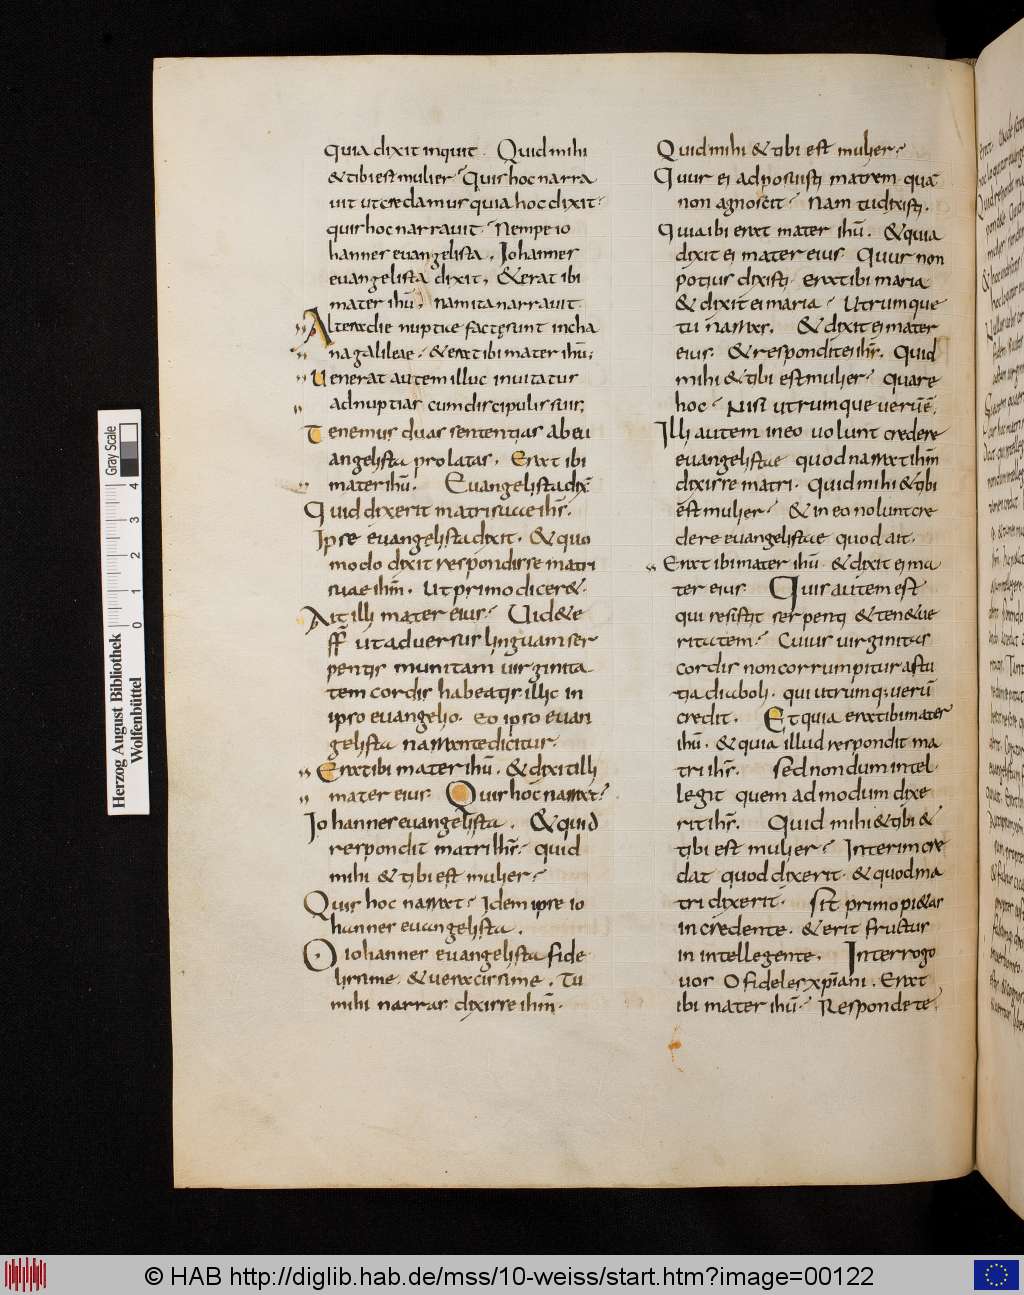 quia dixit inquit. Quid mihi
& tibi est mulier? Quis hoc narra
uit ut credamus quia hoc dixit?
quis hoc narrauit? Nempe io
hannes euangelista. Iohannes
euangelista dixit. & erat ibi
mater ihū. nam ita narrauit
Altera die nuptiae factae sunt in cha
na galileae. & erat ibi mater ihū;
Uenerat autem illuc inuitatus
ad nuptias cum discipulis suis;
Tenemus duas sententias ab eu
angelista prolatas. Erat ibi
mater ihū. Euangelista dix̄
Quid dixerit matri suae ihs̄.
Ipse euangelista dixit. & quo
modo dixit respondisse matri
suae ihm̄. Ut primo dicer&.
Ait illi mater eius? Uid&e
ff̄ ut aduersus linguam ser
pentis munitam uirginita
tem cordis habeatis. illic in
ipso euangelio. eo ipso euan
gelista narrante dicitur.
Erat ibi mater ihū. & dixit illi
mater eius. Quis hoc narrat?
Iohannes euangelista. & quid
respondit matri ihs̄? quid
mihi & tibi est mulier?
Quis hoc narrat? Idem ipse io
hannes euangelista.
O iohannes euangelista fide
lissime. & ueracissime. Tu
mihi narras dixisse ihm̄.
Quid mihi & tibi est mulier?
Quur ei adposuisti matrem quā
non agnoscit? Nam tu dixisti.
Quia ibi erat mater ihū. & quia
dixit ei mater eius. Quur non
potius dixisti erat ibi maria
& dixit ei maria? Utrumque
tu narras. & dixit ei mater
eius. & respondit ei ihs̄. Quid
mihi & tibi est mulier? quare
hoc? Nisi utrumque uerū ē.
Illi autem in eo uolunt credere
euangelistae quod narrat ihm̄
dixisse matri. Quid mihi & tibi
est mulier? & in eo nolunt cre
dere euangelistae quod ait.
Erat ibi mater ihū & dixit ei ma
ter eius. Quis autem est
qui resistit serpenti & ten& ue
ritatem? Cuius uirginitas
cordis non corrumpitur astu
tia diaboli. qui utrumq; uerū
credit. Et quia erat ibi mater
ihū. & quia illud respondit ma
tri ihs̄. sed nondum intel
legit quem ad modum dixe
rit ihs̄. Quid mihi & tibi &
tibi est mulier? Interim cre
dat quod dixerit. & quod ma
tri dixerit. Sit primo pi&as
in credente. & erit fructus
in intellegente. Interrogo
uos O fideles xp̄iani. Erat
ibi mater ihū? Respondete.
Herzog August Bibliothek
Wolfenbüttel
Gray Scale
0 1 2 3 4
© HAB http://diglib.hab.de/mss/10-weiss/start.htm?image=00122